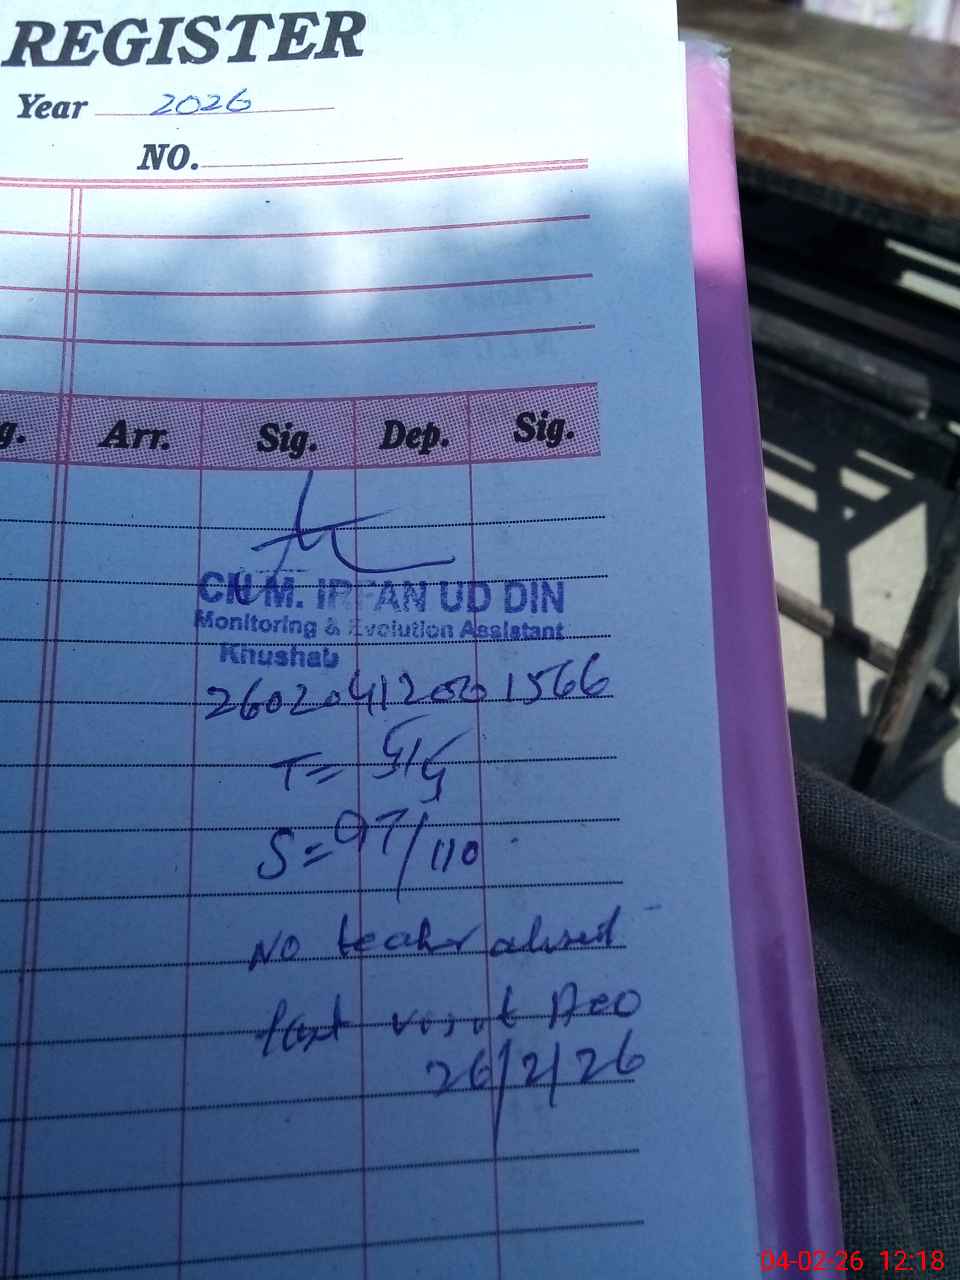 REGISTER
Year 2026
NO.
g. Arr. Sig. Dep. Sig.
CH M. IRFAN UD DIN
Monitoring & Evolution Assistant
Khushab
26020412001566
T= 5/5
S=97/110
No teacher absent
last visit AEO
26/2/26
04-02-26 12:18